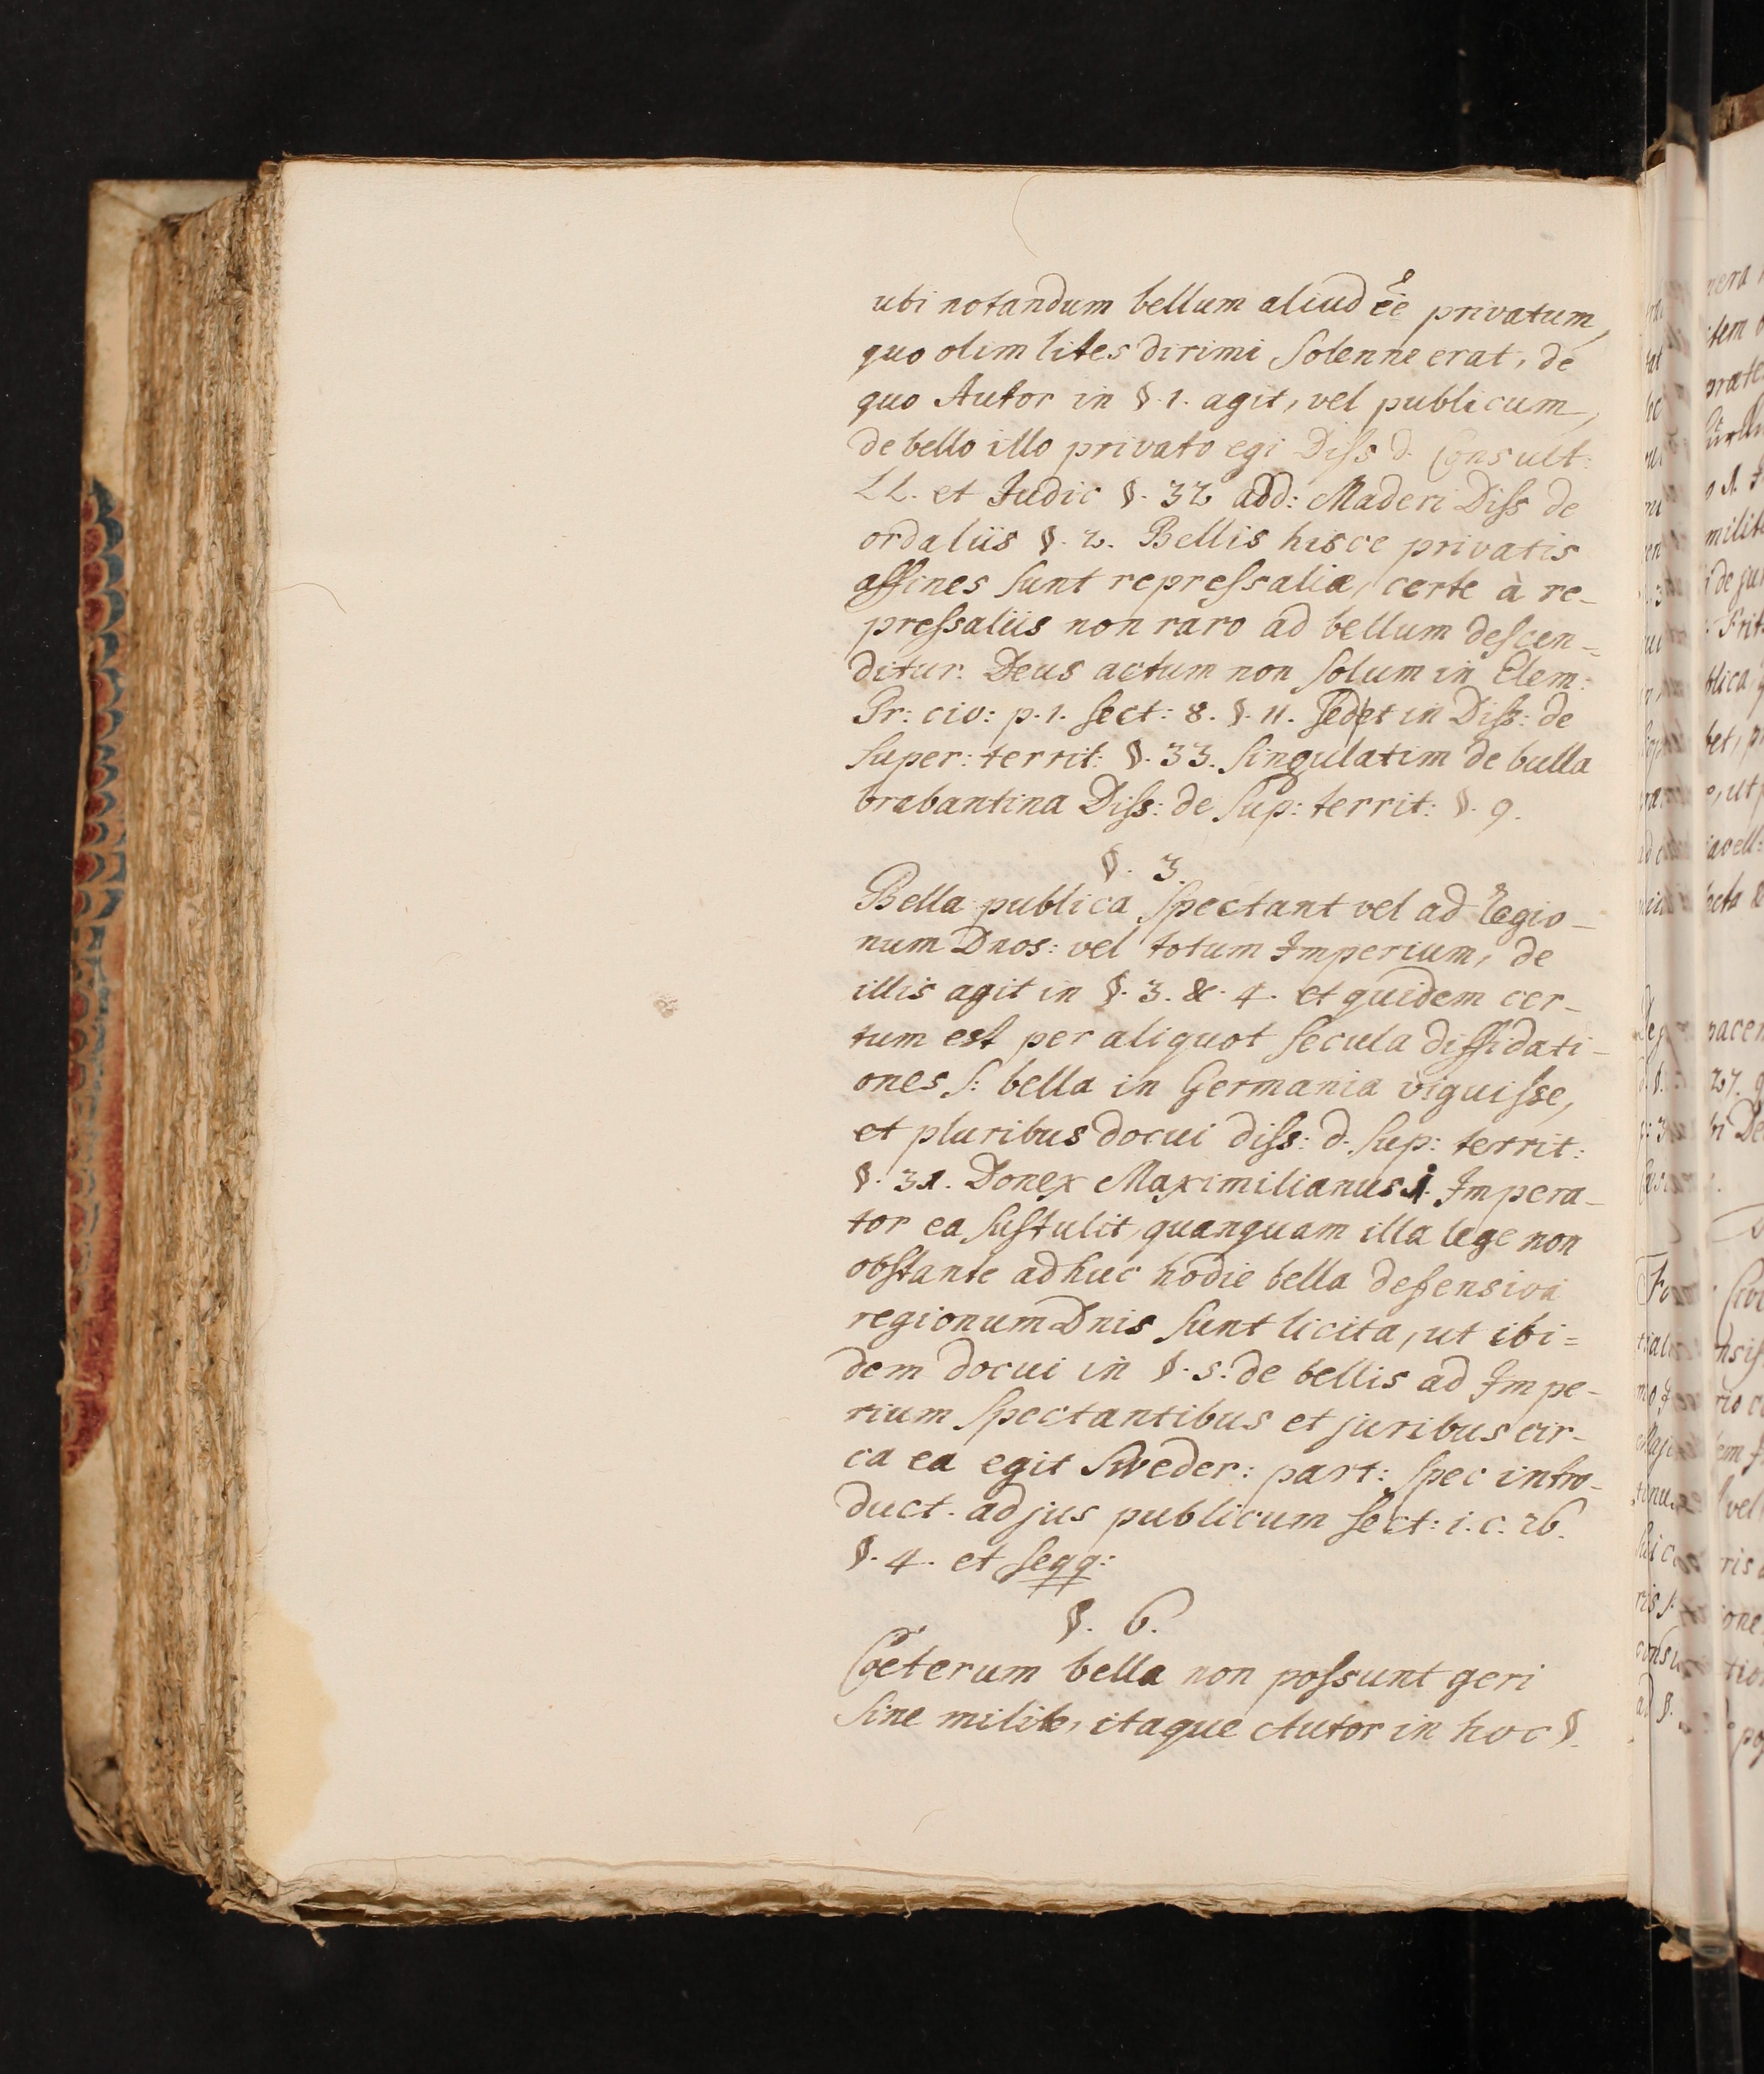 ubi notandum bellum aliud ee privatum,
quo olim lites dirimi solenne erat, de
quo Autor in §. 1. agit, vel publicum,
de bello illo privato egi Diss d. Consult:
LL. et Judic §. 32 add: Maderi Diss de
ordaliis §. 2. Bellis hisce privatis
affines sunt repressaliæ, certe à re-
pressaliis non raro ad bellum descen=
ditur. Deus actum non solum in Elem:
Pr: civ: p. 1. sect: 8. §. 11. sed et in Diss: de
super: territ: §. 33. singulatim de bulla
brabantina Diss: de sup: territ: §. 9.
§. 3.
Bella publica spectant vel ad Regio-
num Dnos: vel totum Imperium, de
illis agit in §. 3. &. 4. et quidem cer-
tum est per aliquot secula diffidati-
ones s: bella in Germania viguisse,
et pluribus docui diss: d. sup: territ:
§. 31. Donex Maximilianus 1. Impera-
tor ea sustulit, quanquam illa lege non
obstante adhuc hodie bella defensiva
regionum Dnis sunt licita, ut ibi=
dem docui in §. 5. de bellis ad Impe-
rium spectantibus et juribus cir-
ca ea egit Sweder: part: spec intro-
duct. ad jus publicum sect: i. c. 26.
§. 4. et seqq:
§. 6.
Cœterum bella non possunt geri
sine milite, itaque Autor in hoc §.